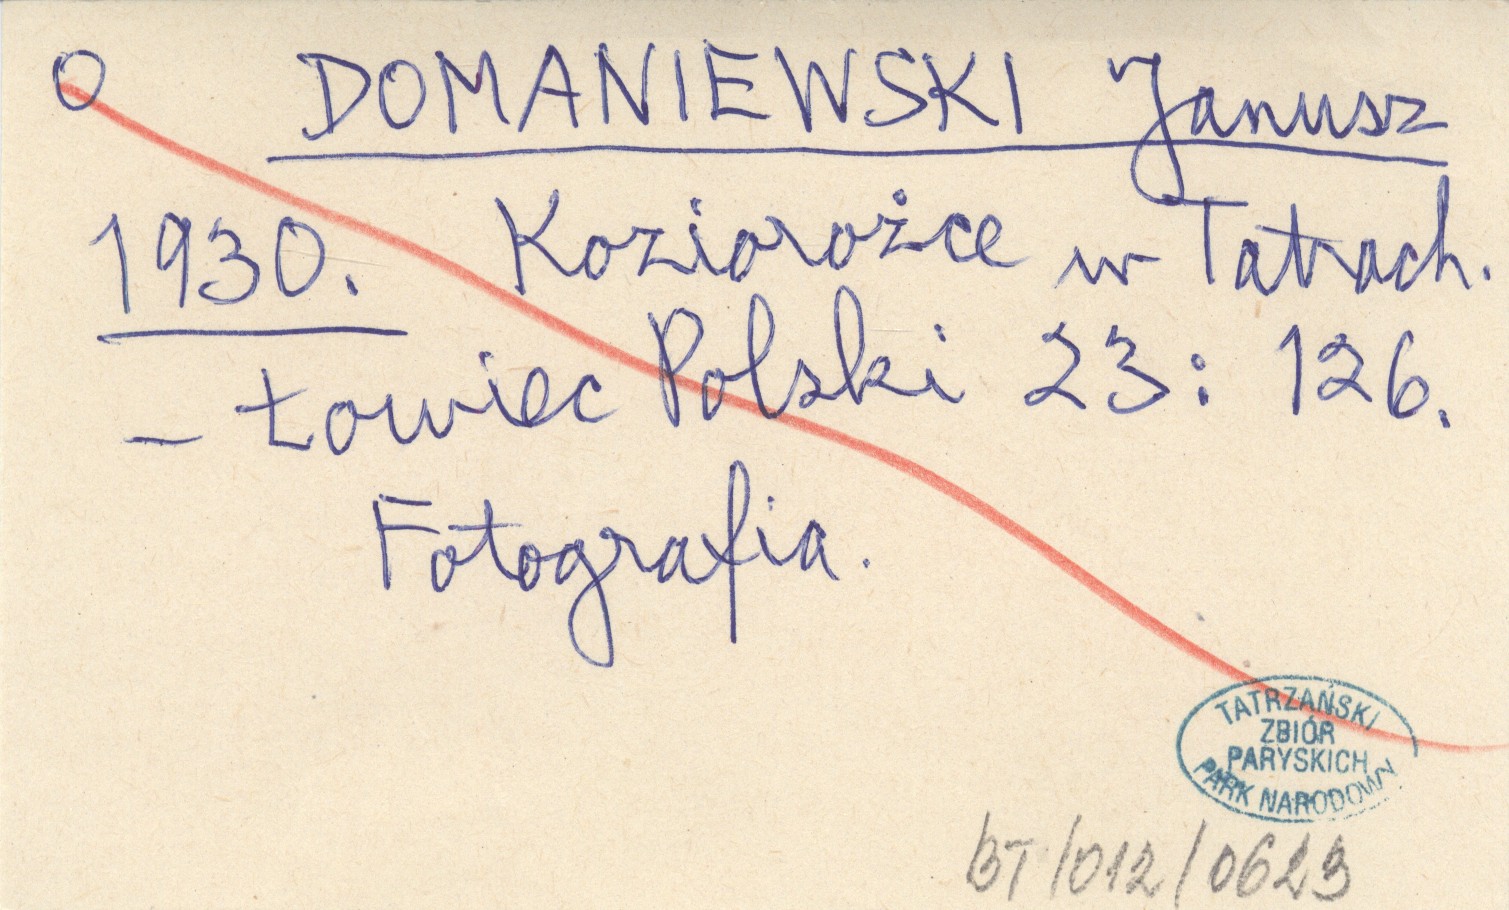 O DOMANIEWSKI Janusz
1930. Koziorożce w Tatrach.
– Łowiec Polski 23: 126.
Fotografia.
TATRZAŃSKI
ZBIÓR
PARYSKICH
PARK NARODOWY
BT/012/0623